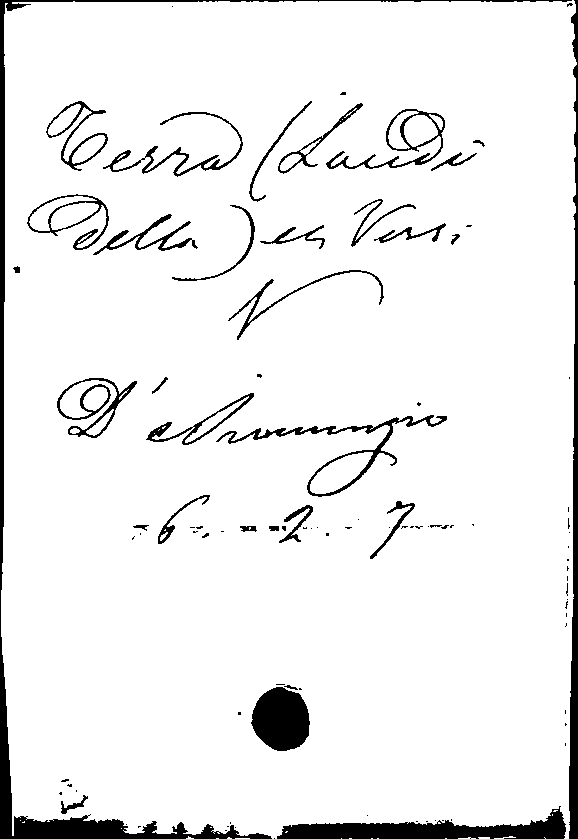 Terra (Laudi
della) in Versi
V
D'Annunzio
6. 2. 7